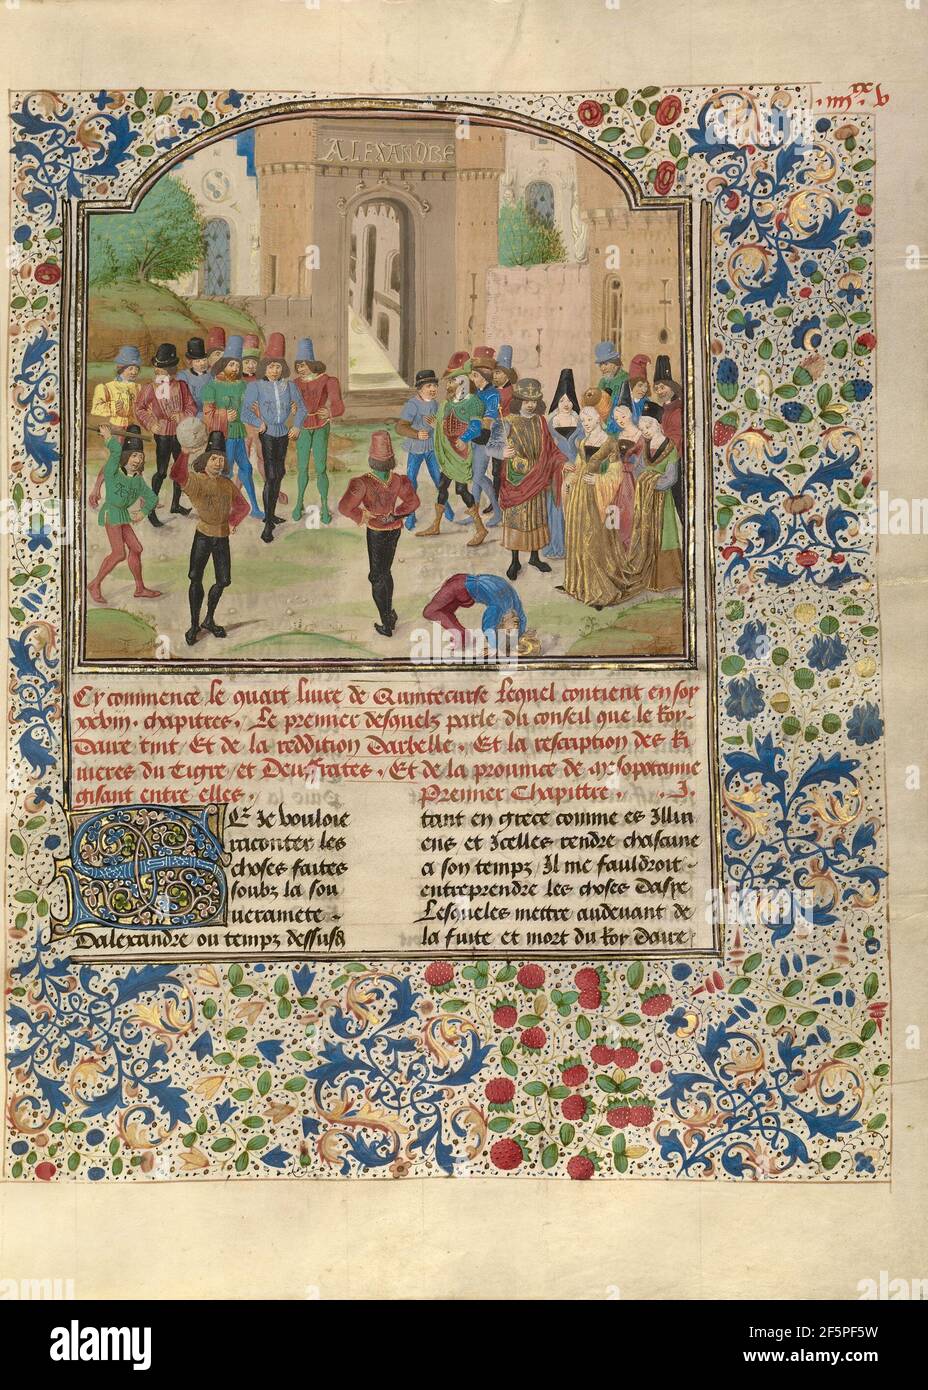 v. iiii. xx
ALEXANDRE
Cy commence le quart liure de Quintecurse lequel contient en soy
xxviii. chapitres. Le premier desquelz parle du conseil que le Roy
Daire tint Et de la reddition Darbelle. Et la rescription des Ri
uieres du Tigre et Deuffrates. Et de la prouince de Mesopotamie
gisant entre elles. Premier Chapittre. .I.
SE Je vouloie
raconter les
choses faites
soubz la sou
ueraineté
Dalexandre ou temps dessusd
tant en grece comme es Illiri
ens et Icelles rendre chascune
a son temps Il me fauldroit
entreprendre les choses Dasye
Lesqueles mettre audeuant de
la fuite et mort du Roy Daire
alamy
Image ID: 2F5PF5W
www.alamy.com